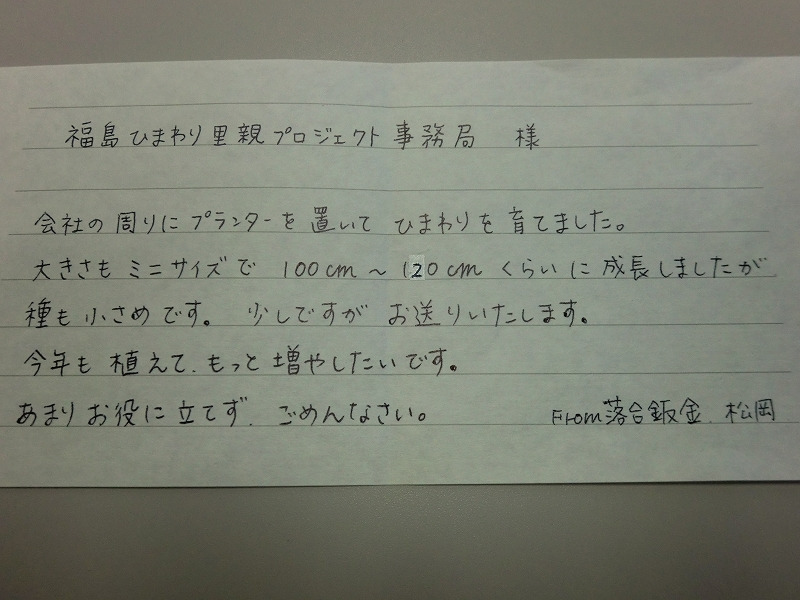 福島ひまわり里親プロジェクト事務局 様
会社の周りにプランターを置いて ひまわりを育てました。
大きさもミニサイズで 100cm〜120cmくらいに成長しましたが
種も小さめです。 少しですが お送りいたします。
今年も植えて、もっと増やしたいです。
あまりお役に立てず、ごめんなさい。 From落合鈑金、松岡